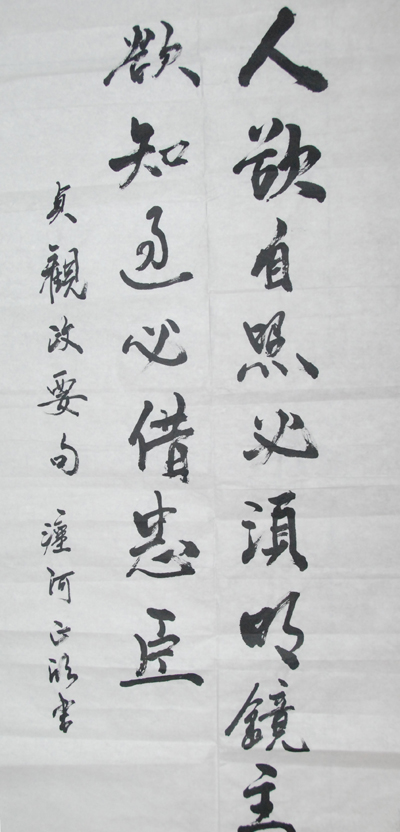 人欲自照必須明鏡主
欲知過必借忠臣
貞觀政要句 河正書